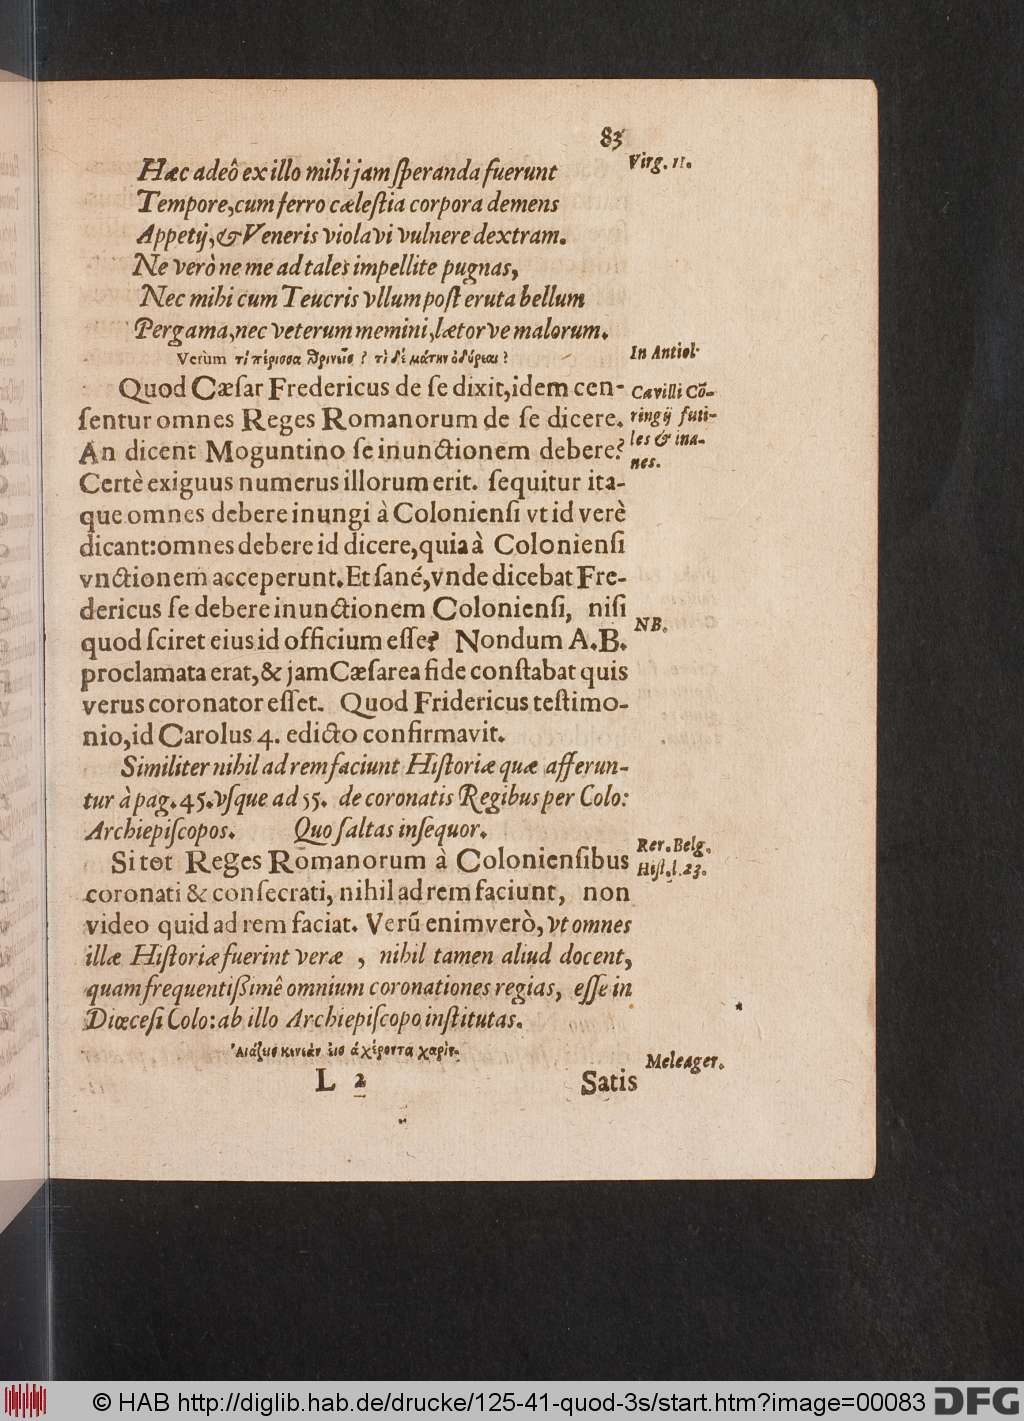 83
Hæc adeô ex illo mihi jam ſperanda fuerunt
Virg. 11.
Tempore, cum ferro cæleſtia corpora demens
Appetij, & Veneris violavi vulnere dextram.
Ne verò ne me ad tales impellite pugnas,
Nec mihi cum Teucris vllum poſt eruta bellum
Pergama, nec veterum memini, lætor ve malorum.
Verùm τί περισσα θρινῶισ ? τὶ δὲ μάτην ὀδύρεαι ?
In Antiol.
Quod Cæſar Fredericus de ſe dixit, idem cen-
Cavilli Cõ-
ſentur omnes Reges Romanorum de ſe dicere.
ringij futi-
An dicent Moguntino ſe inunctionem debere?
les & ina-
nes.
Certè exiguus numerus illorum erit. ſequitur ita-
que omnes debere inungi à Colonienſi vt id verè
dicant: omnes debere id dicere, quia à Colonienſi
vnctionem acceperunt. Et ſané, vnde dicebat Fre-
dericus ſe debere inunctionem Colonienſi, niſi
NB.
quod ſciret eius id officium eſſe? Nondum A. B.
proclamata erat, & jam Cæſarea fide conſtabat quis
verus coronator eſſet. Quod Fridericus teſtimo-
nio, id Carolus 4. edicto confirmavit.
Similiter nihil ad rem faciunt Hiſtoriæ quæ afferun-
tur à pag. 45. vſque ad 55. de coronatis Regibus per Colo:
Archiepiſcopos. Quo ſaltas inſequor.
Si tot Reges Romanorum à Colonienſibus
Rer. Belg.
Hiſt. l. 23.
coronati & conſecrati, nihil ad rem faciunt, non
video quid ad rem faciat. Verũ enimverò, vt omnes
illæ Hiſtoriæ fuerint veræ , nihil tamen aliud docent,
quam frequentißimê omnium coronationes regias, eſſe in
Diœceſi Colo: ab illo Archiepiſcopo inſtitutas.
εισ ἀχέροντα χαρίν.
Meleager.
L 2
Satis
© HAB http://diglib.hab.de/drucke/125-41-quod-3s/start.htm?image=00083
DFG